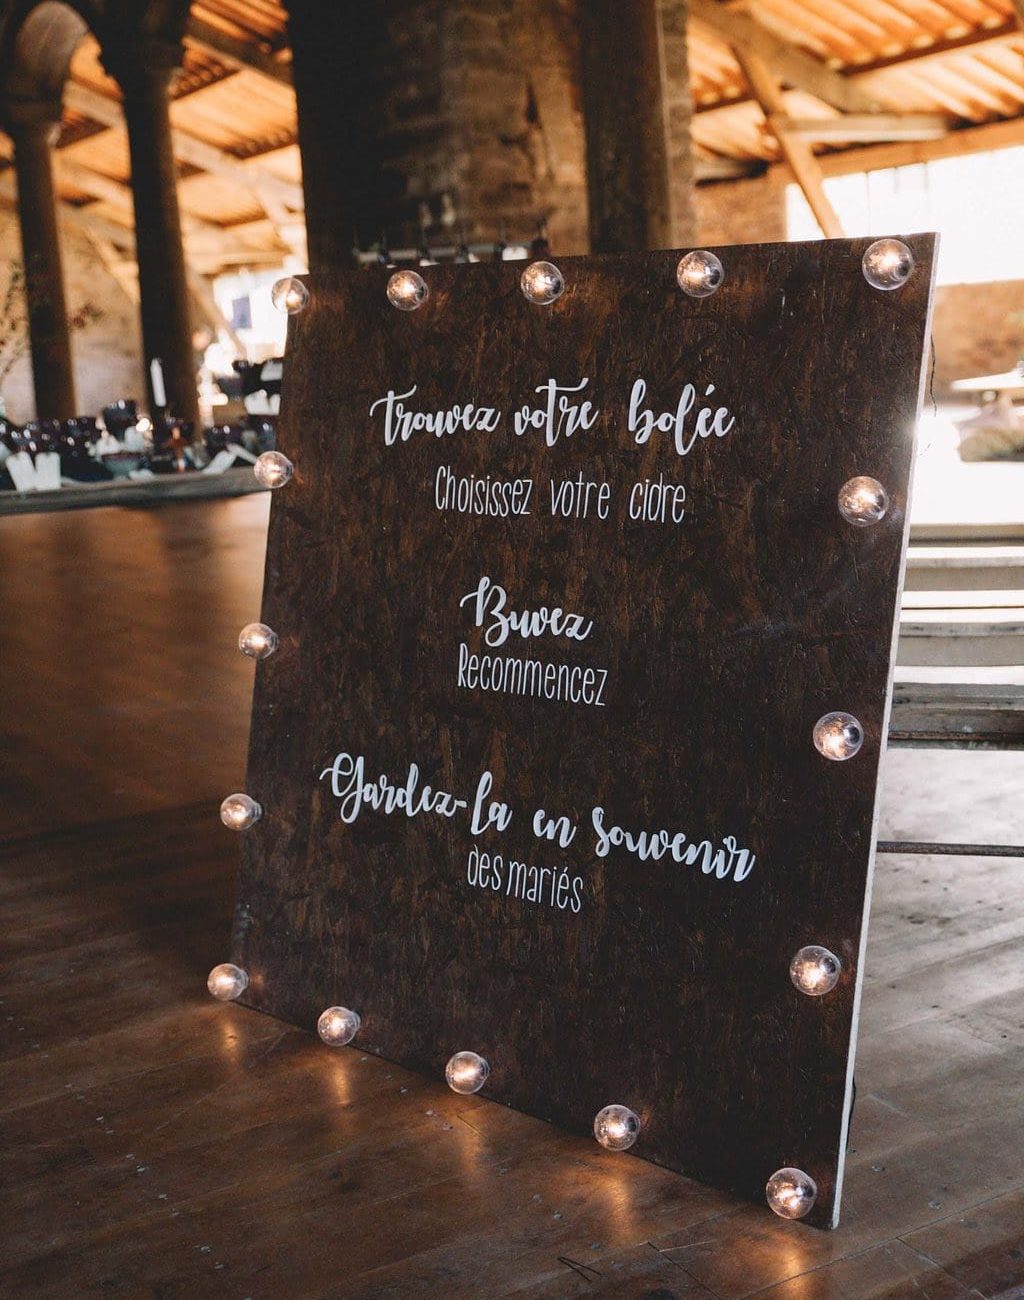 Trouvez votre bolée
Choisissez votre cidre
Buvez
Recommencez
Gardez-la en souvenir
des mariés